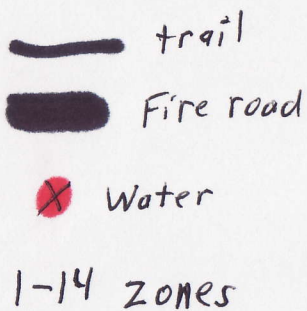 trail
Fire road
Water
1-14 zones